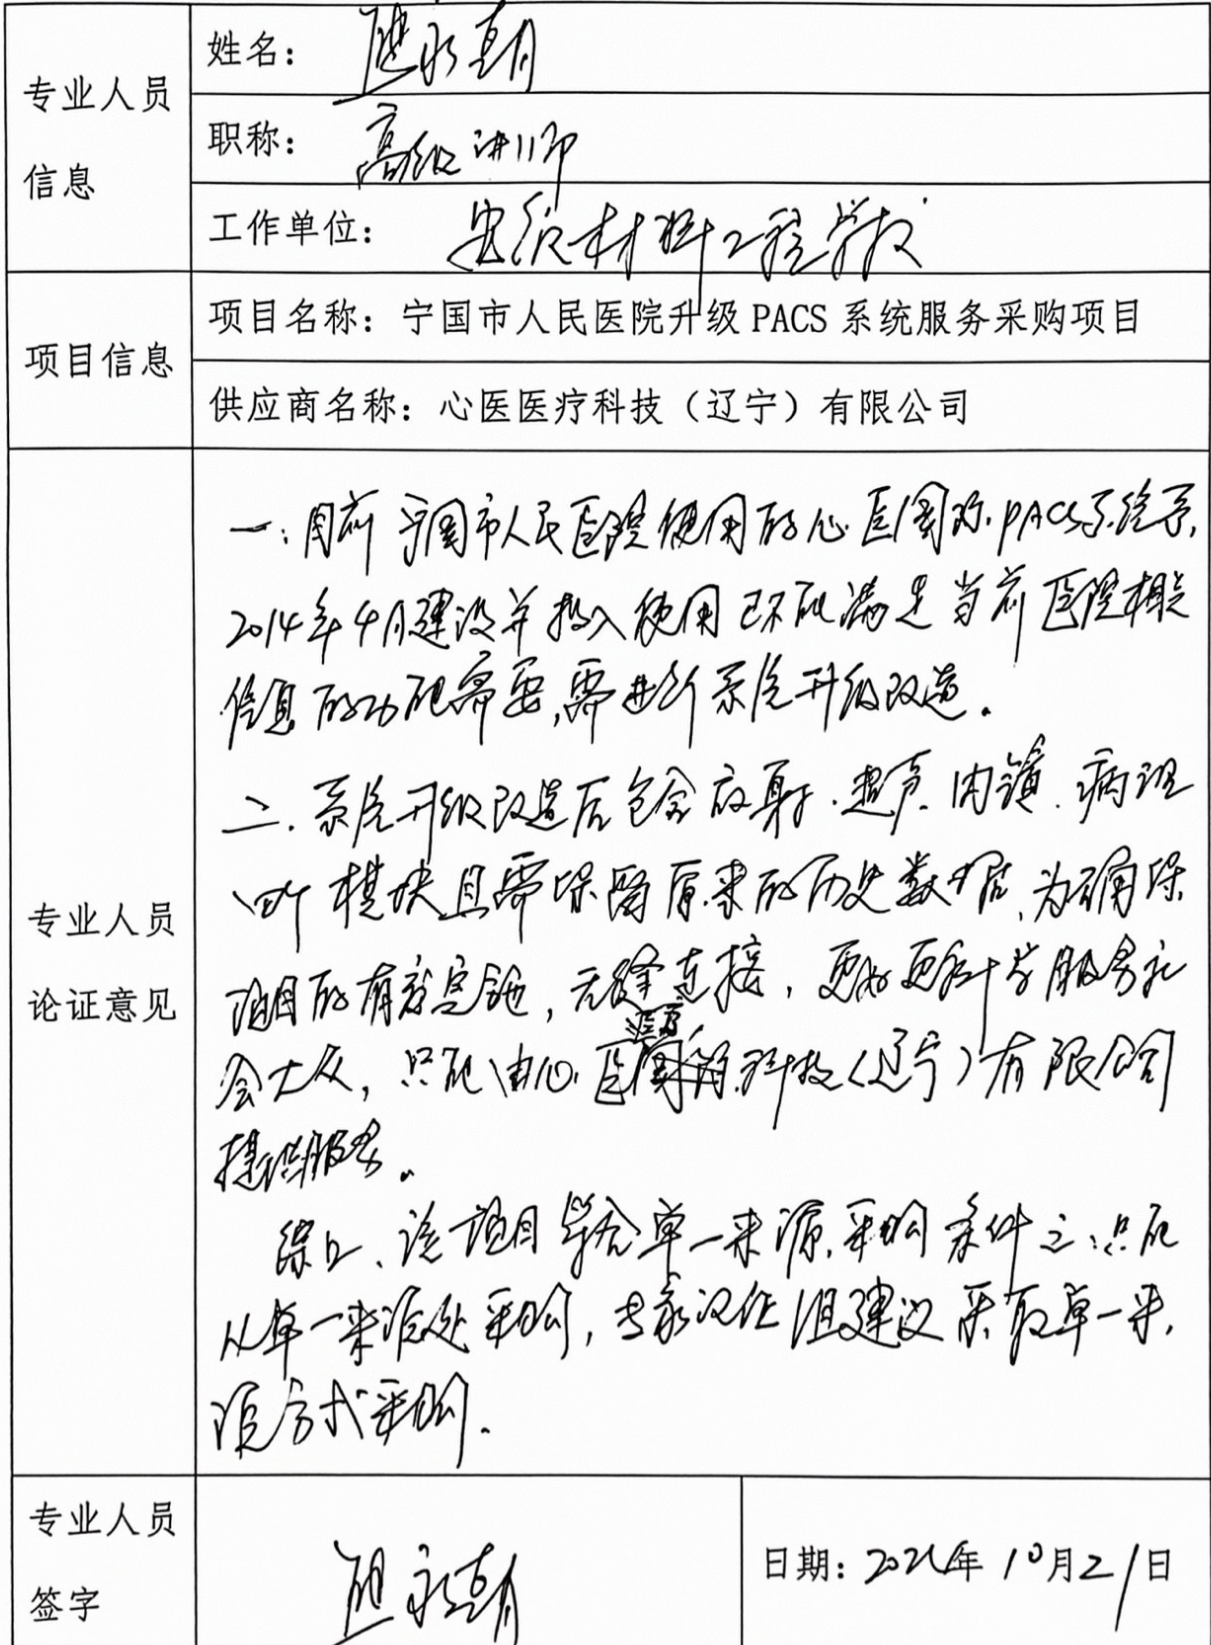 专业人员
信息
姓名：
职称：高级讲师
工作单位：安徽材料工程学校
项目信息
项目名称：宁国市人民医院升级 PACS 系统服务采购项目
供应商名称：心医医疗科技（辽宁）有限公司
专业人员
论证意见
一：目前宁国市人民医院使用的心医国际PACS系统系
2014年4月建设并投入使用已不能满足当前医院相关
信息的功能需要，需进行系统升级改造。
二．系统升级改造后包含放射．超声．内镜．病理
四个模块且需保留原来的历史数据，为确保
项目的有效实施，无缝连接，更好更科学服务社
会大众，只能由心医医疗科技（辽宁）有限公司
提供服务。
综上、该项目符合单一来源采购条件之：只能
从单一来源处采购，专家论证组建议采取单一来
源方式采购．
专业人员
签字
日期： 年10月21日